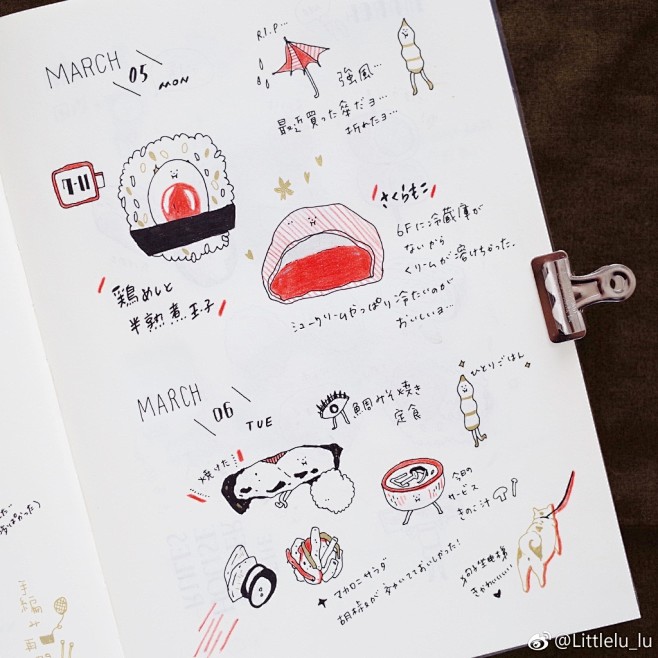 MARCH 05 MON
R.I.P...
強風...
最近買った傘だヨ...
折れたヨ...
7-11
鶏めしと
半熟煮玉子
さくらもこ
6Fに冷蔵庫が
ないから
クリームが溶けちゃった.
シュークリームやっぱり冷たいのが
おいしいヨ...
MARCH 06 TUE
鯛みそ焼き
定食
ひとりごはん
焼けた
今日の
サービス
きのこ汁
マカロニサラダ
胡椒が多かいておいしかった!
きゃわいいい!
@Littlelu_lu